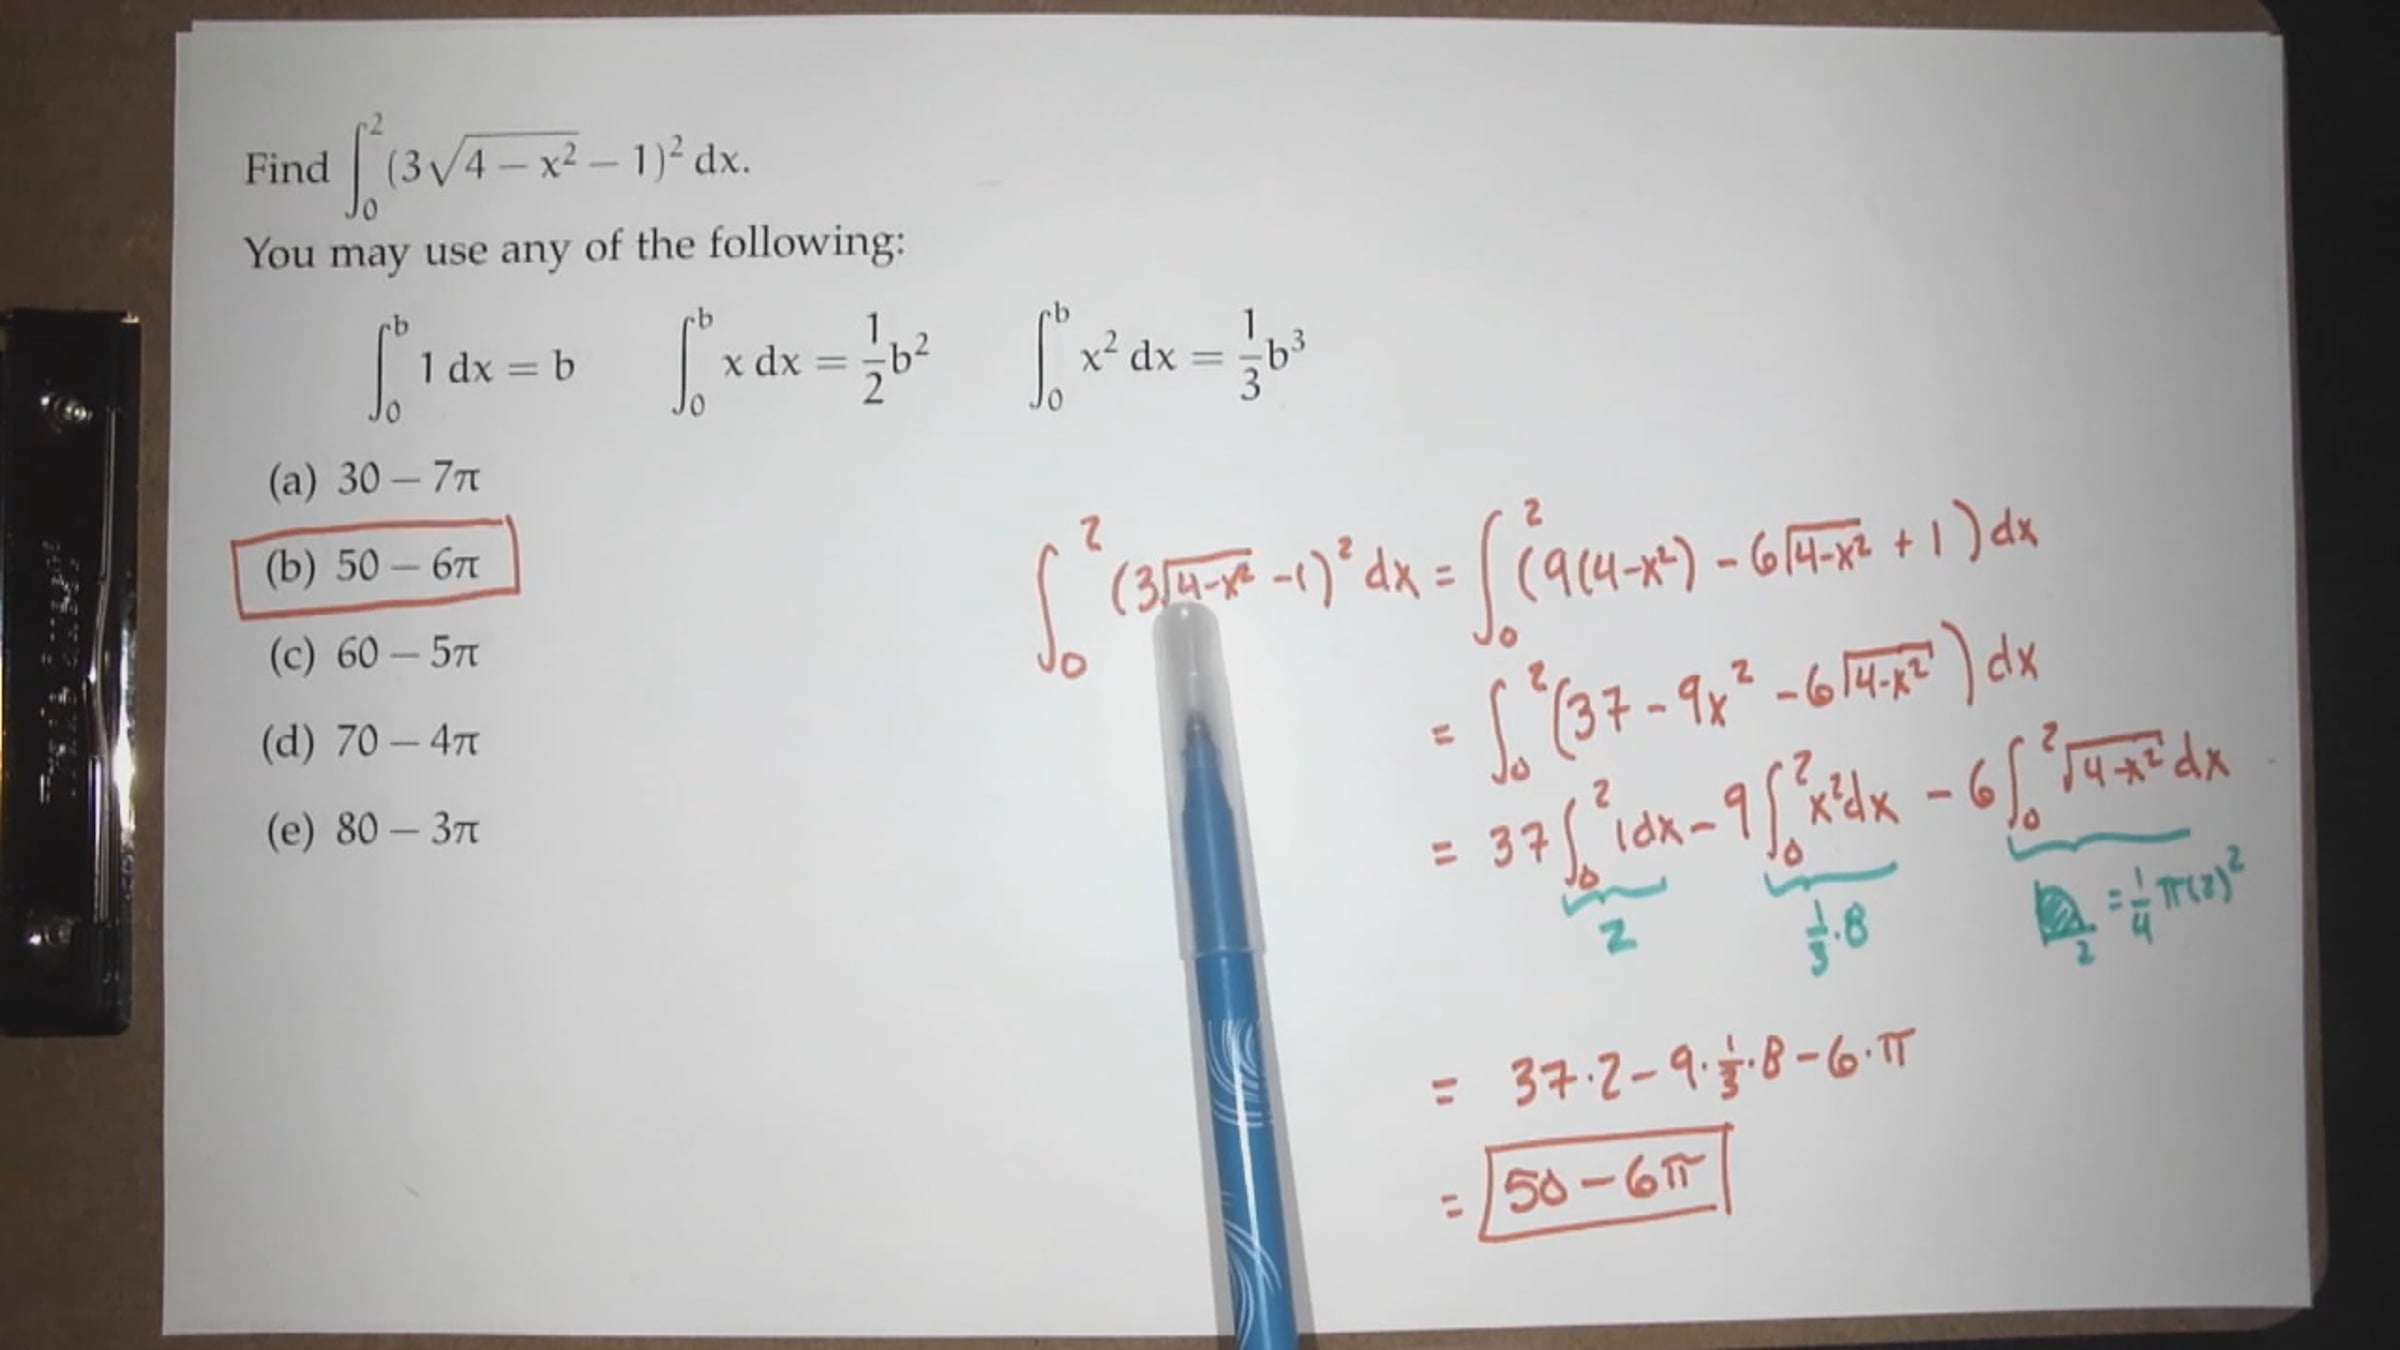 Find ∫₀² (3√(4 − x²) − 1)² dx.
You may use any of the following:
∫₀ᵇ 1 dx = b ∫₀ᵇ x dx = 1/2 b² ∫₀ᵇ x² dx = 1/3 b³
(a) 30 − 7π
(b) 50 − 6π
(c) 60 − 5π
(d) 70 − 4π
(e) 80 − 3π
∫₀² (3√(4-x²) -1)² dx = ∫₀² (9(4-x²) - 6√(4-x²) + 1) dx
= ∫₀² (37 - 9x² - 6√(4-x²)) dx
= 37 ∫₀² 1dx - 9 ∫₀² x²dx - 6 ∫₀² √(4-x²) dx
2 1/3·8 2 = 1/4 π(2)²
= 37·2 - 9·1/3·8 - 6·π
= 50 - 6π